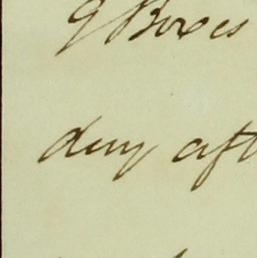 9 Boxes
day aft